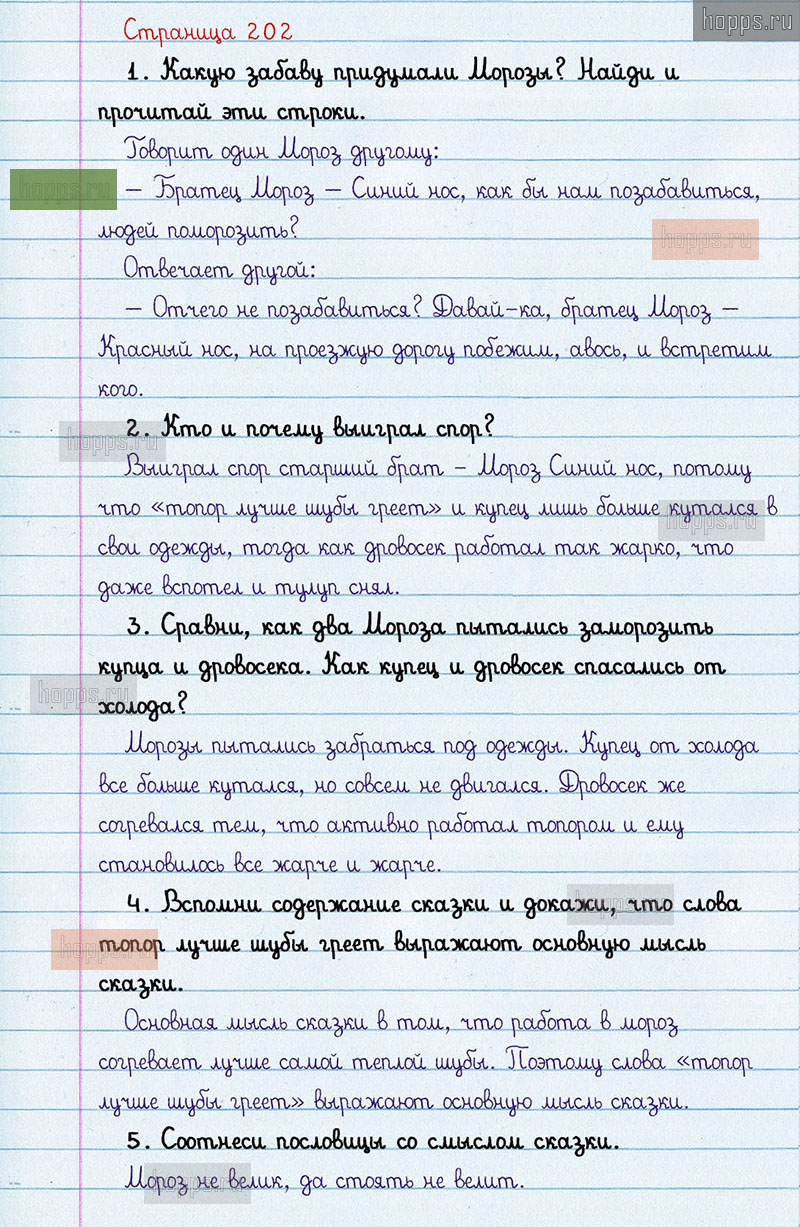 hopps.ru
Страница 202
1. Какую забаву придумали Морозы? Найди и
прочитай эти строки.
Говорит один Мороз другому:
hopps.ru
— Братец Мороз — Синий нос, как бы нам позабавиться,
людей поморозить?
hopps.ru
Отвечает другой:
— Отчего не позабавиться? Давай-ка, братец Мороз —
Красный нос, на проезжую дорогу побежим, авось, и встретим
кого.
2. Кто и почему выиграл спор?
hopps.ru
Выиграл спор старший брат – Мороз Синий нос, потому
что «топор лучше шубы греет» и купец лишь больше кутался в
hopps.ru
свои одежды, тогда как дровосек работал так жарко, что
даже вспотел и тулуп снял.
3. Сравни, как два Мороза пытались заморозить
купца и дровосека. Как купец и дровосек спасались от
hopps.ru
холода?
Морозы пытались забраться под одежды. Купец от холода
все больше кутался, но совсем не двигался. Дровосек же
согревался тем, что активно работал топором и ему
становилось все жарче и жарче.
4. Вспомни содержание сказки и докажи, что слова
hopps.ru
топор лучше шубы греет выражают основную мысль
hopps.ru
сказки.
Основная мысль сказки в том, что работа в мороз
согревает лучше самой теплой шубы. Поэтому слова «топор
лучше шубы греет» выражают основную мысль сказки.
5. Соотнеси пословицы со смыслом сказки.
Мороз не велик, да стоять не велит.
hopps.ru